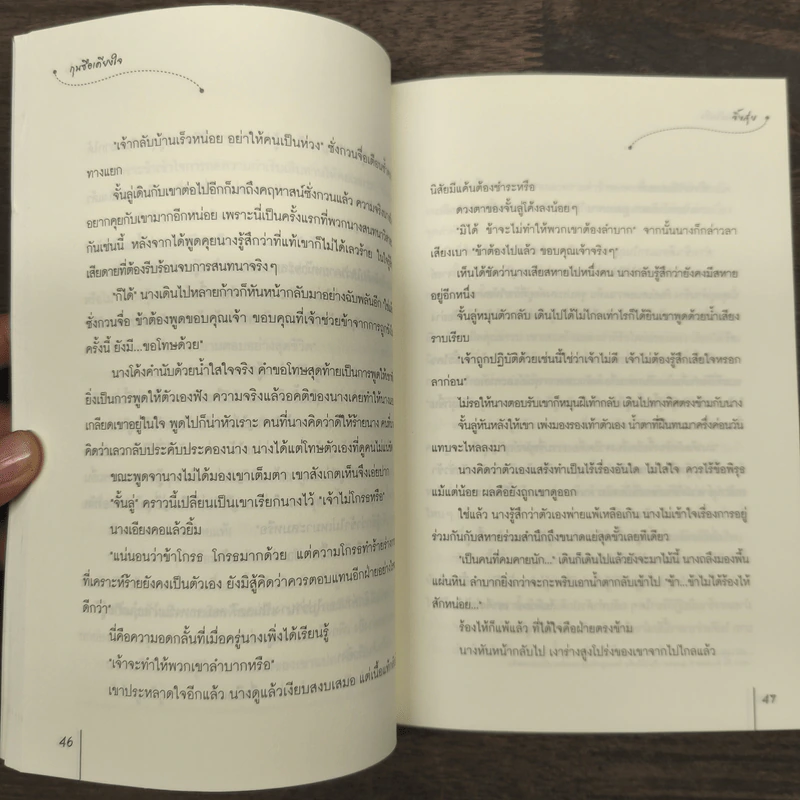 กุนซือเคียงใจ
"เจ้ากลับบ้านเร็วหน่อย อย่าให้คนเป็นห่วง" ซั่งกวนจื่อเตือนข้าม
ทางแยก
จั้นลู่เดินกับเขาต่อไปอีกก็มาถึงคฤหาสน์ซั่งกวนแล้ว ความจริงนาง
อยากคุยกับเขามากอีกหน่อย เพราะนี่เป็นครั้งแรกที่พวกนางสนทนา
กันเช่นนี้ หลังจากได้พูดคุยนางรู้สึกว่าที่แท้เขาก็ไม่ได้เลวร้าย
เสียดายที่ต้องรีบร้อนจบการสนทนาจริงๆ
"ก็ได้" นางเดินไปหลายก้าวก็หันหน้ากลับมาอย่างฉับพลันอีก
ซั่งกวนจื่อ ข้าต้องพูดขอบคุณเจ้า ขอบคุณที่เจ้าช่วยข้าจากการถูก
ครั้งนี้ ยังมี...ขอโทษด้วย"
นางโค้งคำนับด้วยน้ำใสใจจริง คำขอโทษสุดท้ายเป็นการพูดให้เขา
ยิ่งเป็นการพูดให้ตัวเองฟัง ความจริงแล้วอคติของนางเคยทำให้นาง
เกลียดเขาอยู่ในใจ พูดไปก็น่าหัวเราะ คนที่นางคิดว่าดีให้ร้ายนาง คนที่
คิดว่าเลวกลับประคับประคองนาง นางได้แต่โทษตัวเองที่ดูคนไม่
ขณะพูดจานางไม่ได้มองเขาเต็มตา เขาสังเกตเห็นจึงเอ่ยปาก
"จั้นลู่" คราวนี้เปลี่ยนเป็นเขาเรียกนางไว้ "เจ้าไม่โกรธหรือ"
นางเอียงคอแล้วยิ้ม
"แน่นอนว่าข้าโกรธ โกรธมากด้วย แต่ความโกรธทำร้ายร่างกาย
ที่เคราะห์ร้ายยังคงเป็นตัวเอง ยังมิสู้คิดว่าควรตอบแทนอีกฝ่ายอย่างไร
ดีกว่า"
นี่คือความอดกลั้นที่เมื่อครู่นางเพิ่งได้เรียนรู้
"เจ้าจะทำให้พวกเขาลำบากหรือ"
เขาประหลาดใจอีกแล้ว นางดูแล้วเงียบสงบเสมอ แต่เนื้อแท้
46
จั้นลู่
นิสัยมีแค้นต้องชำระหรือ
ดวงตาของจั้นลู่โค้งลงน้อยๆ
"มิได้ ข้าจะไม่ทำให้พวกเขาต้องลำบาก" จากนั้นนางก็กล่าวลา
เสียงเบา "ข้าต้องไปแล้ว ขอบคุณเจ้าจริงๆ"
เห็นได้ชัดว่านางเสียสหายไปหนึ่งคน นางกลับรู้สึกว่ายังคงมีสหาย
อยู่อีกหนึ่ง
จั้นลู่หมุนตัวกลับ เดินไปได้ไม่ไกลเท่าไรก็ได้ยินเขาพูดด้วยน้ำเสียง
ราบเรียบ
"เจ้าถูกปฏิบัติด้วยเช่นนี้ใช่ว่าเจ้าไม่ดี เจ้าไม่ต้องรู้สึกเสียใจหรอก
ลาก่อน"
ไม่รอให้นางตอบรับเขาก็หมุนฝีเท้ากลับ เดินไปทางทิศตรงข้ามกับนาง
จั้นลู่หันหลังให้เขา เพ่งมองรองเท้าตัวเอง น้ำตาที่ฝืนทนมาครึ่งค่อนวัน
แทบจะไหลลงมา
นางคิดว่าตัวเองแสร้งทำเป็นไร้เรื่องอันใด ไม่ใส่ใจ ควรไร้ข้อพิรุธ
แม้แต่น้อย ผลคือยังถูกเขาดูออก
ใช่แล้ว นางรู้สึกว่าตัวเองพ่ายแพ้เหลือเกิน นางไม่เข้าใจเรื่องการอยู่
ร่วมกันกับสหายร่วมสำนักถึงขนาดแย่สุดขั้วเลยทีเดียว
"เป็นคนที่คมคายนัก..." เดินก็เดินไปแล้วยังจะมาไม้นี้ นางถลึงมองพื้น
แผ่นหิน ลำบากยิ่งกว่าจะกะพริบเอาน้ำตากลับเข้าไป "ข้า...ข้าไม่ได้ร้องไห้
สักหน่อย..."
ร้องไห้ก็แพ้แล้ว ที่ได้ใจคือฝ่ายตรงข้าม
นางหันหน้ากลับไป เงาร่างสูงโปร่งของเขาจากไปไกลแล้ว
47